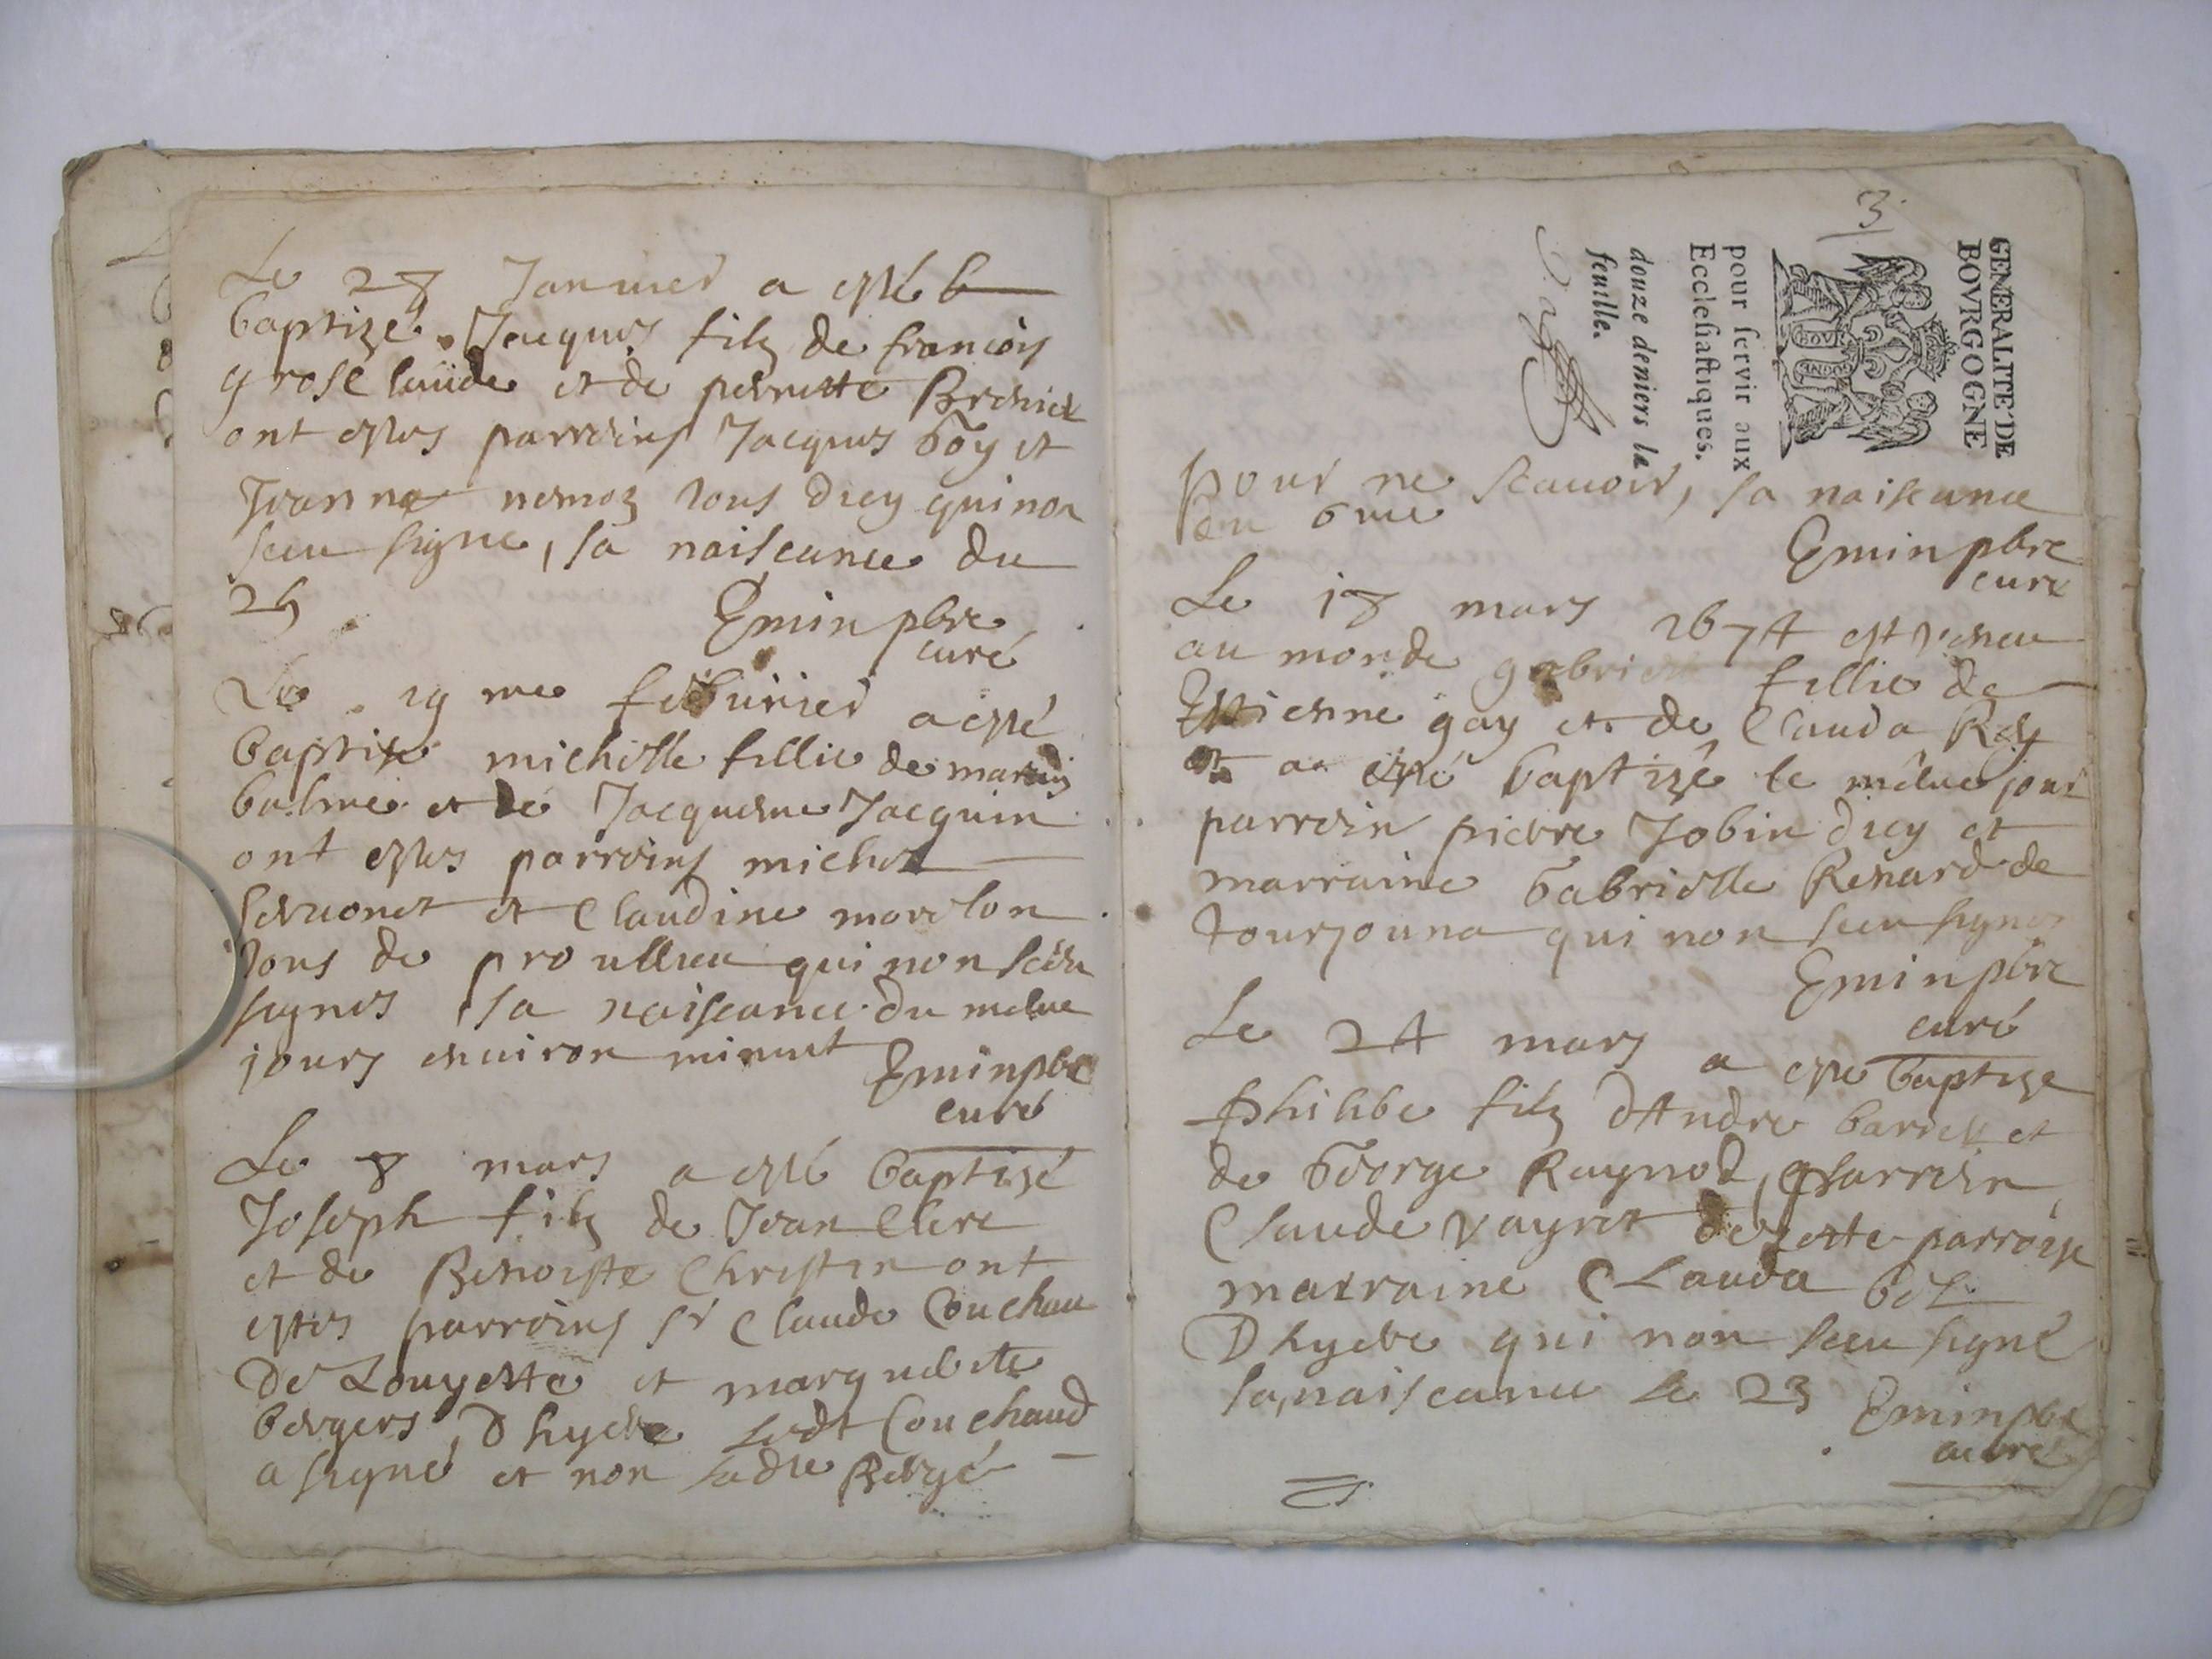 Le 28 Januier a esté b
baptizé Jacques filz de francois
groselaude et de pernette
ont estes parroins Jacques Goy et
Jeanne nemoz tous dicy qui non
sceu signe, sa naiscance du
25
Emin pbre
curé
Le 19me feburier a esté
baptisé michelle fillie de
balme et de Jacquesme Jacquin
ont estes parroins michel
seruonet et Claudine morelon
tous de proullieu qui non sceu
signes, sa naiscance du mesme
jours enuiron minuit Emin pbre
curé
Le 8 mars a esté baptisé
Joseph filz de Jean Clere
et de Benoiste Christin ont
estes parroins sr Claude Couchau
De Louyette et marguerite
bergers Dhyere ledt Couchaud
a signé et non ladte Bergé
3
GENERALITE DE
BOVRGOGNE
BOVR
pour servir aux
Ecclesiastiques.
douze deniers la
feuille.
pour ne scauoir, sa naiscance
du 6me
Emin pbre
curé
Le 18 mars 1674 est veneu
au monde gabrielle fillie de
Estienne gay et de Clauda Rey
et a esté baptizé le mesme jour
parroin pierre Jobin dicy et
marraine Gabrielle Renard de
tourjouna qui non sceu signes
Emin pbre
curé
Le 24 mars a esté baptize
philibe filz dAndré et
de George Raynod, parroin
Claude vayret de cette parroisse
marraine Clauda
Dhyere qui non sceu signé
sa naiscance le 23 Emin pbre
curé